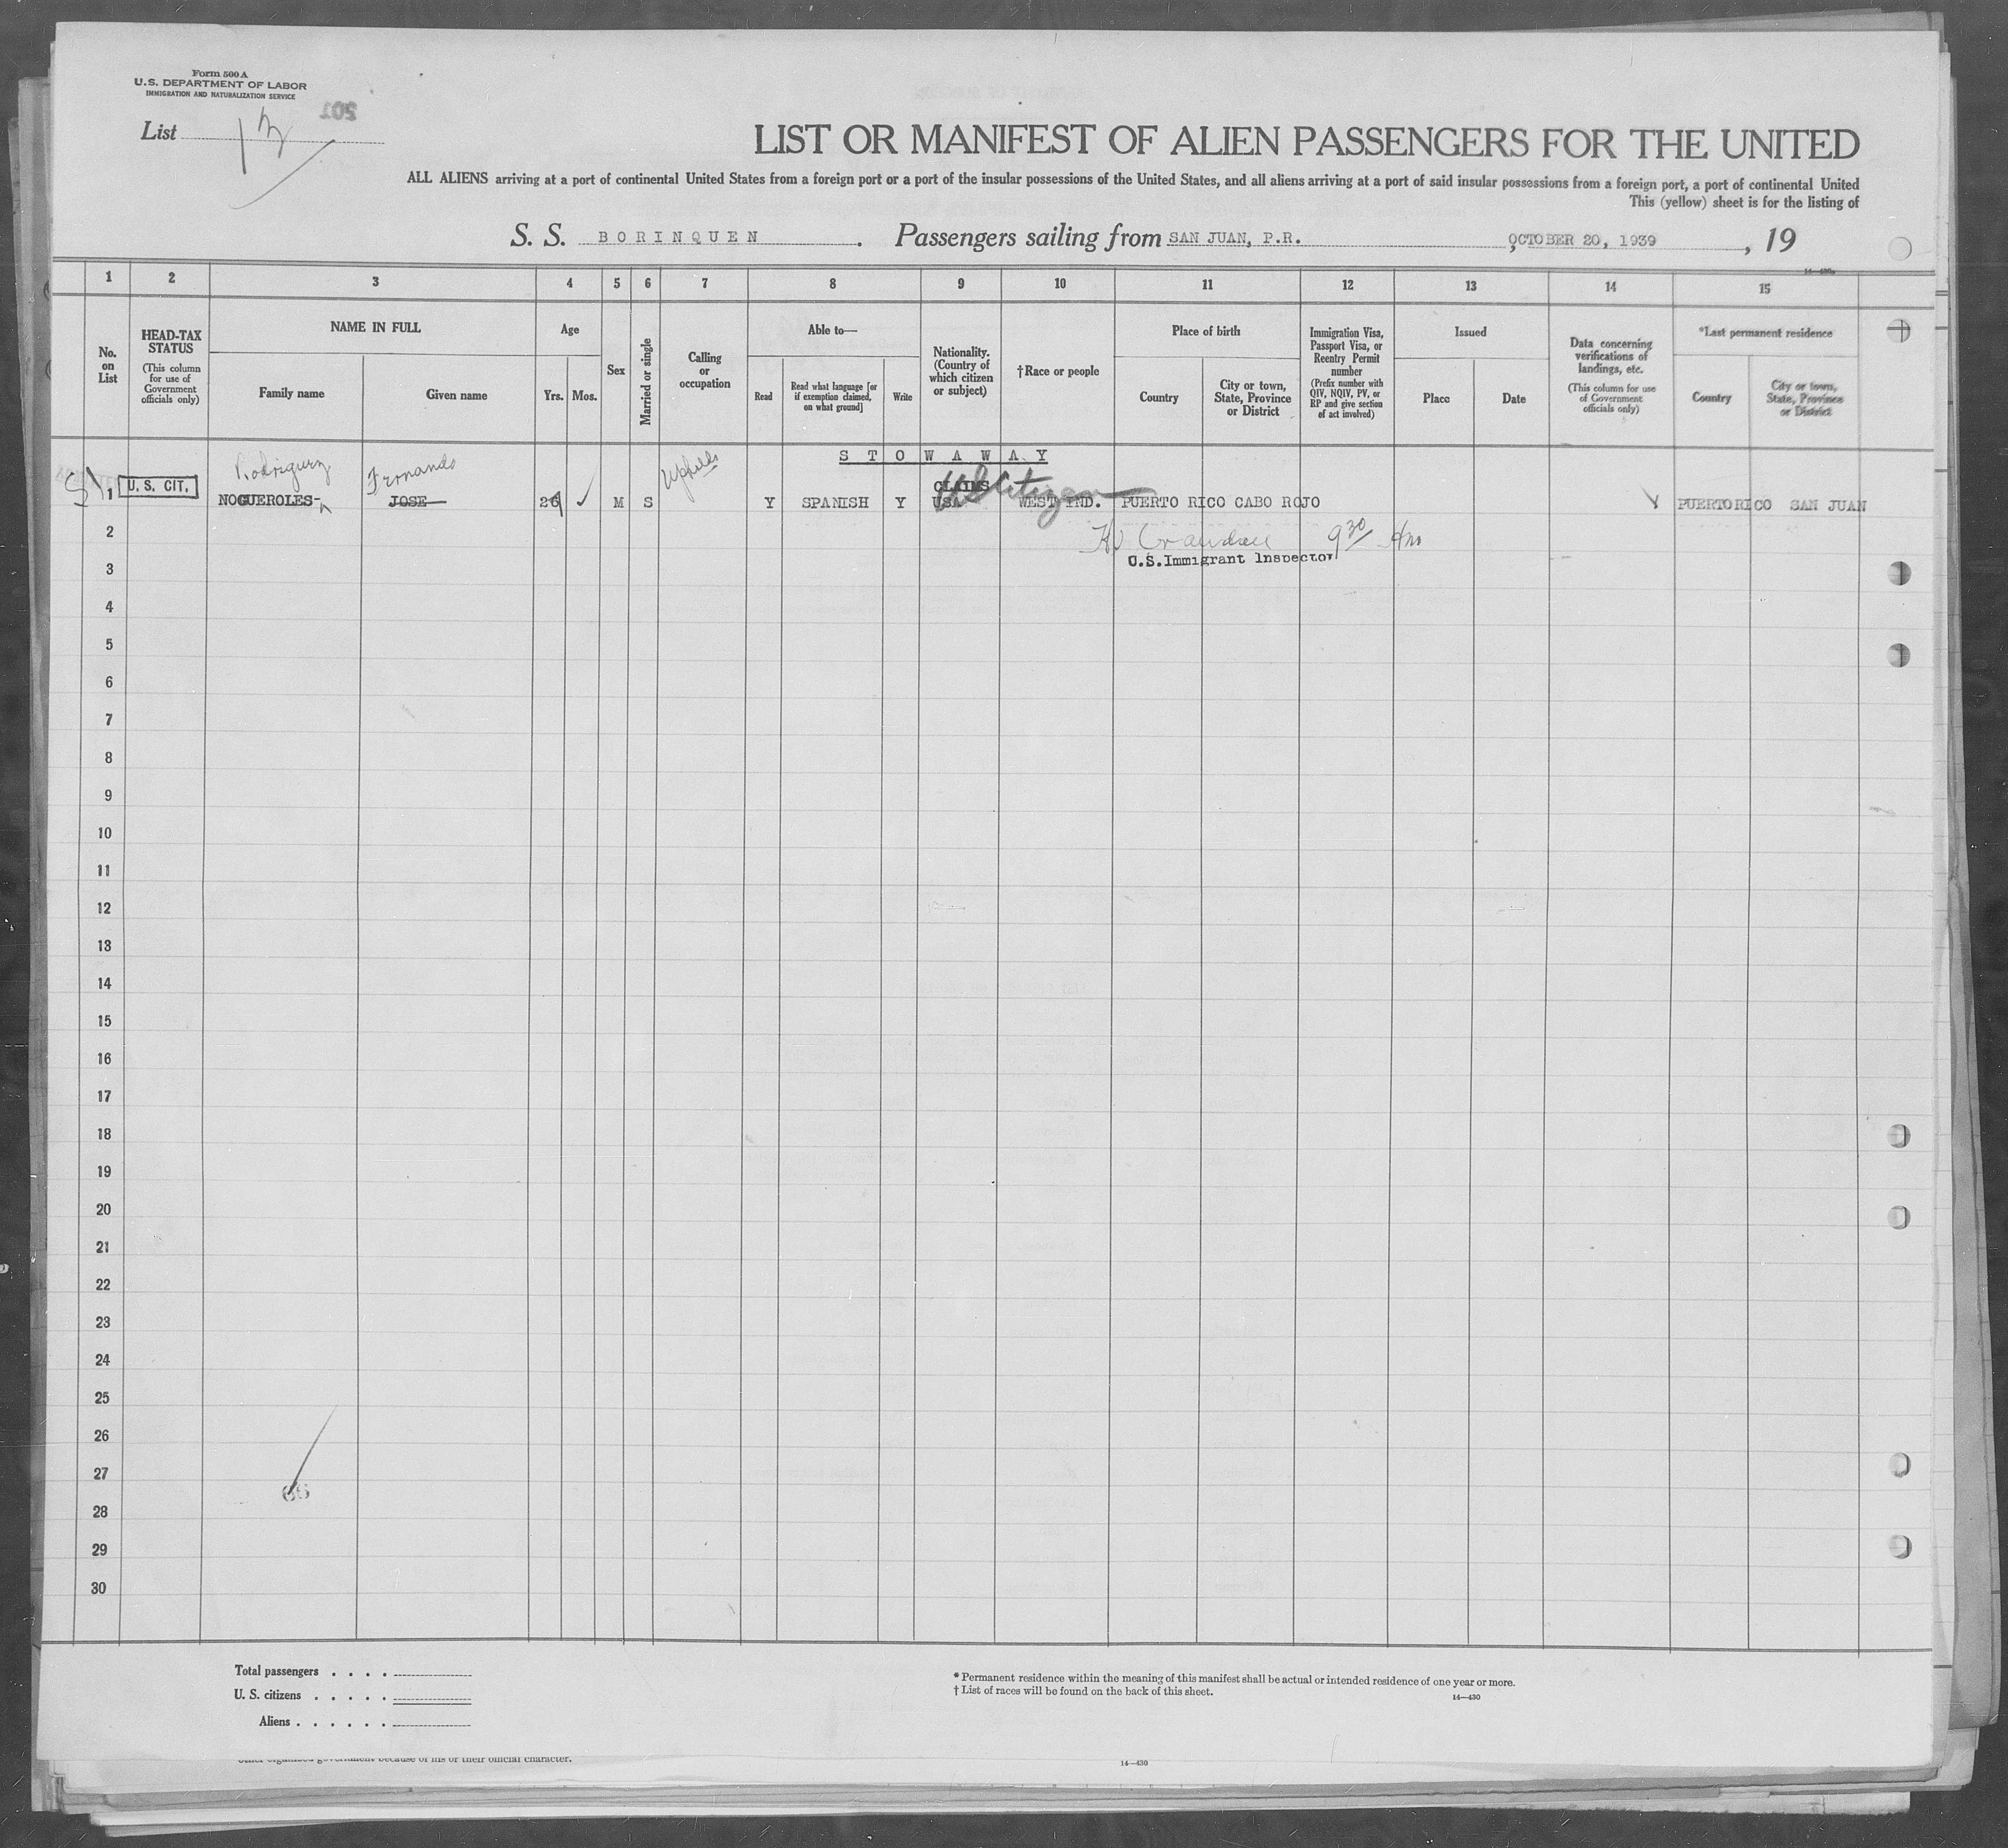 Form 500 A
U.S. DEPARTMENT OF LABOR
IMMIGRATION AND NATURALIZATION SERVICE
List
LIST OR MANIFEST OF ALIEN PASSENGERS FOR THE UNITED
ALL ALIENS arriving at a port of continental United States from a foreign port or a port of the insular possessions of the United States, and all aliens arriving at a port of said insular possessions from a foreign port, a port of continental United
This (yellow) sheet is for the listing of
S. S. BORINQUEN. Passengers sailing from SAN JUAN, P.R. OCTOBER 20, 1939, 19
14—430a
1 2 3 4 5 6 7 8 9 10 11 12 13 14 15
No. on List
HEAD-TAX STATUS (This column for use of Government officials only)
NAME IN FULL
Family name Given name
Age
Yrs. Mos.
Sex
Married or single
Calling or occupation
Able to—
Read Read what language [or if exemption claimed, on what ground] Write
Nationality. (Country of which citizen or subject)
†Race or people
Place of birth
Country City or town, State, Province or District
Immigration Visa, Passport Visa, or Reentry Permit number (Prefix number with QIV, NQIV, PV, or RP and give section of act involved)
Issued
Place Date
Data concerning verifications of landings, etc. (This column for use of Government officials only)
*Last permanent residence
Country City or town, State, Province or District
STOWAWAY
Rodriguez Fernando
CLAIMS
US Citizen
1 U. S. CIT. NOGUEROLES JOSE 26 M S Y SPANISH Y USA WEST IND. PUERTO RICO CABO ROJO PUERTO RICO SAN JUAN
2 9 30 Am
U.S. Immigrant Inspector
3
4
5
6
7
8
9
10
11
12
13
14
15
16
17
18
19
20
21
22
23
24
25
26
27
28
29
30
Total passengers . . . .
U. S. citizens . . . . .
Aliens . . . . . .
* Permanent residence within the meaning of this manifest shall be actual or intended residence of one year or more.
† List of races will be found on the back of this sheet.
14—430
other organized government because of his or their official character.
14—430